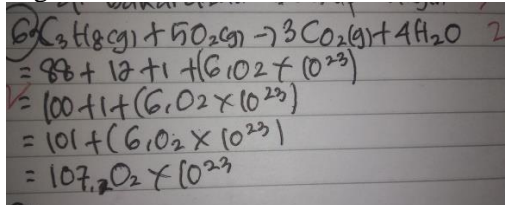 6) C3H8(g) + 5O2(g) -> 3CO2(g) + 4H2O 2
= 88 + 12 + 1 + (6,02 x 10^23)
= 100 + 1 + (6,02 x 10^23)
= 101 + (6,02 x 10^23)
= 107,02 x 10^23